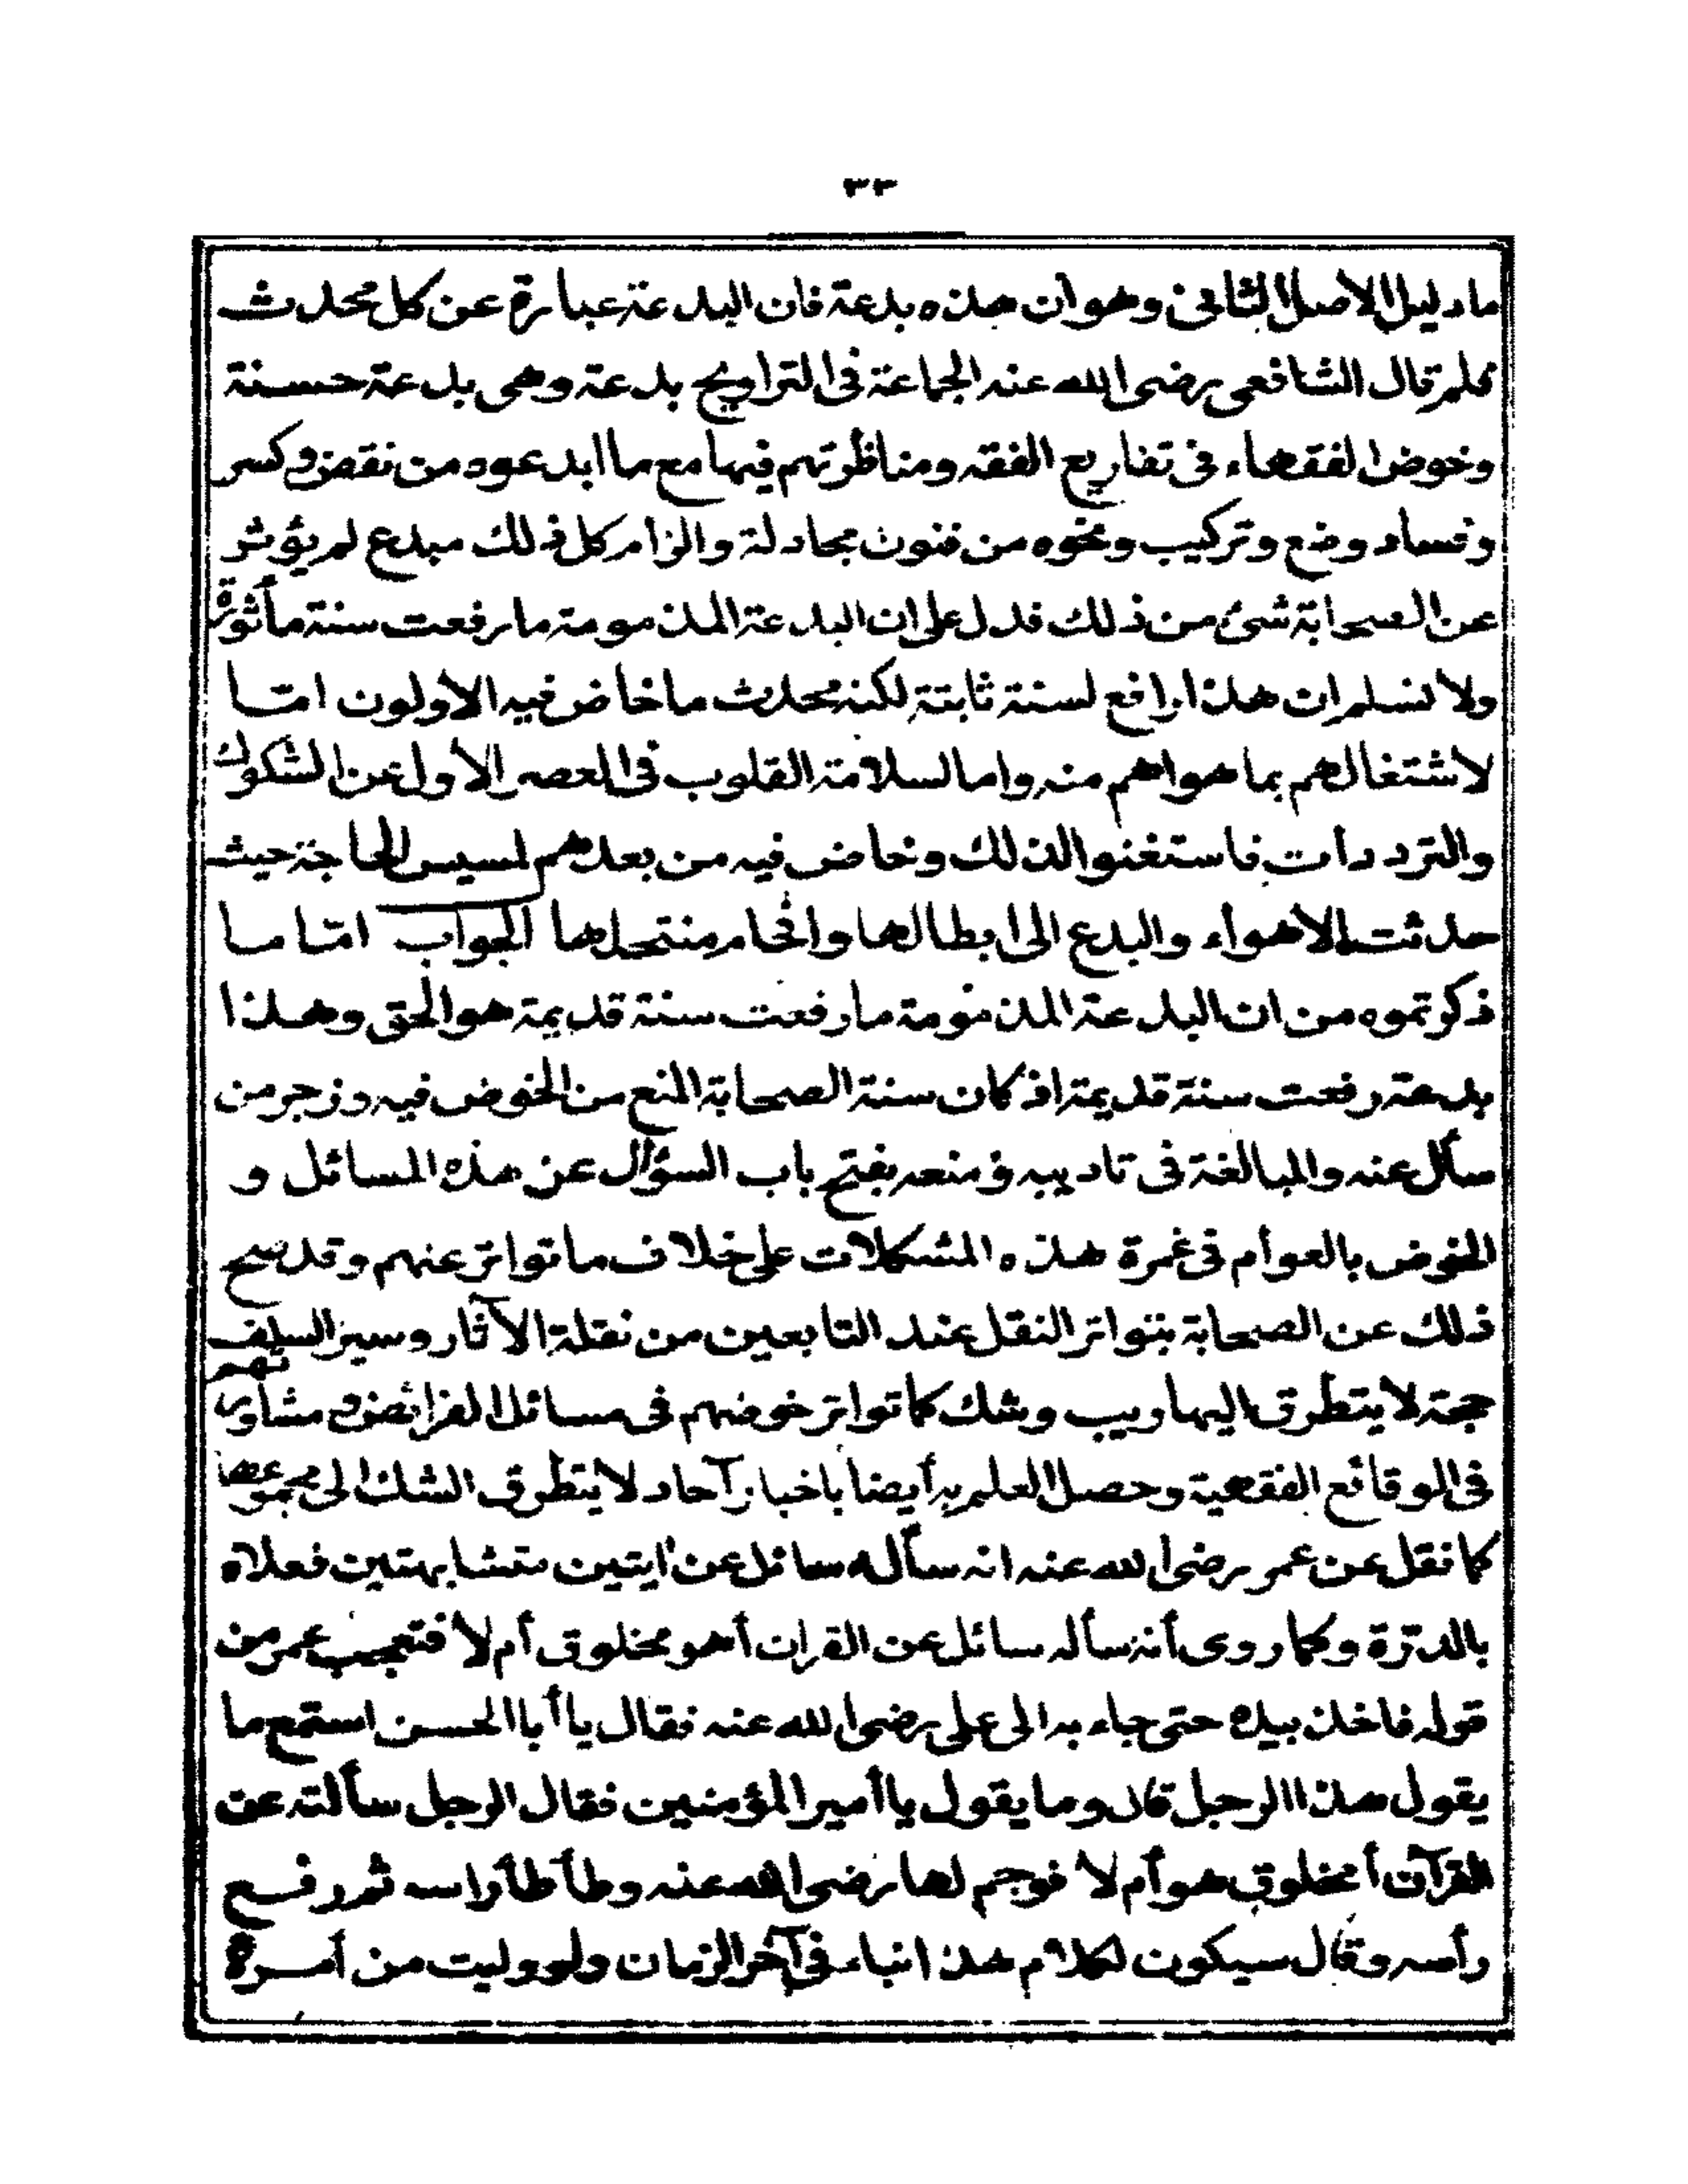 ٣٣
ما دليل الاصل الثانى وهو ان هذه بدعة فان البدعة عبارة عن كل محدث
فلم قال الشافعى رضى الله عنه الجماعة فى التراويح بدعة وهى بدعة حسنة
وخوض الفقهاء فى تفاريع الفقه ومناظرتهم فيها مع ما ابدعوه من نقض وكسر
وفساد وضع وتركيب ونحوه من فنون مجادلة والزام كل ذلك مبدع لم يؤثر
عن الصحابة شئ من ذلك فدل على ان البدعة المذمومة ما رفعت سنة مأثورة
ولا نسلم ان هذا رافع لسنة ثابتة لكنه محدث ما خاض فيه الأولون امّا
لاشتغالهم بما هو اهم منه واما لسلامة القلوب فى العصر الأول عن الشكوك
والترددات فاستغنوا لذلك وخاض فيه من بعدهم لمسيس الحاجة حيث
حدثت الاهواء والبدع الى ابطالها وافحام منتحلها الجواب امّا ما
ذكرتموه من ان البدعة المذمومة ما رفعت سنة قديمة هو الحق وهذا
بدعة رفعت سنة قديمة اذ كان سنة الصحابة المنع من الخوض فيه وزجر من
سأل عنه والمبالغة فى تاديبه ومنعه بفتح باب السؤال عن هذه المسائل و
الخوض بالعوام فى غمرة هذه المشكلات على خلاف ما تواتر عنهم وقد صح
ذلك عن الصحابة بتواتر النقل عند التابعين من نقلة الآثار وسير السلف
حجة لا يتطرق اليها ريب وشك كما تواتر خوضهم فى مسائل الفرائض ومشاورتهم
فى الوقائع الفقهية وحصل العلم به أيضا باخبار آحاد لا يتطرق الشك الى مجموعها
كما نقل عن عمر رضى الله عنه انه سأله سائل عن ايتين متشابهتين فعلاه
بالدرّة وكما روى أنه سأله سائل عن القران أهو مخلوق أم لا فتعجب عمر من
قوله فاخذ بيده حتى جاء به الى على رضى الله عنه فقال يا أبا الحسن استمع ما
يقول هذا الرجل قال وما يقول يا أمير المؤمنين فقال الرجل سألته عن
القرآن أمخلوق هو أم لا فوجم لها رضى الله عنه وطأطأ راسه ثم رفع
رأسه وقال سيكون لكلام هذا انباء فى آخر الزمان ولو وليت من أمره